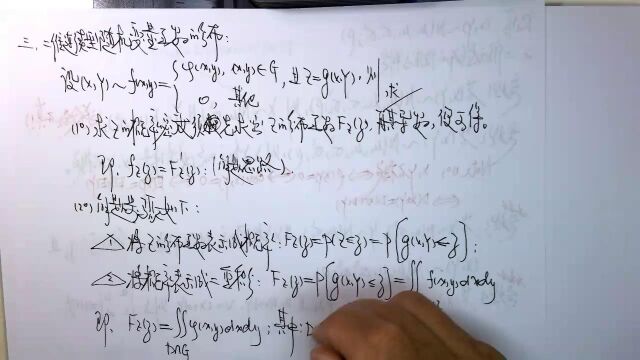 三、二维连续型随机变量函数的分布:
设(X,Y)~f(x,y)={φ(x,y), (x,y)∈G, 且Z=g(X,Y), 则
0, 其他 求
(1°) 求Z的概率密度 先求出Z的分布函数F_Z(z), 再求导,
即. f_Z(z)=F'_Z(z): (解题思路).
(2°) 如下:
△1 将Z的分布函数表示成概率: F_Z(z)=P(Z≤z)=P[g(X,Y)≤z];
△2 将概率表示成二重积分: F_Z(z)=P[g(X,Y)≤z]=∬f(x,y)dxdy
即. F_Z(z)=∬φ(x,y)dxdy; 其中: D
D∩G